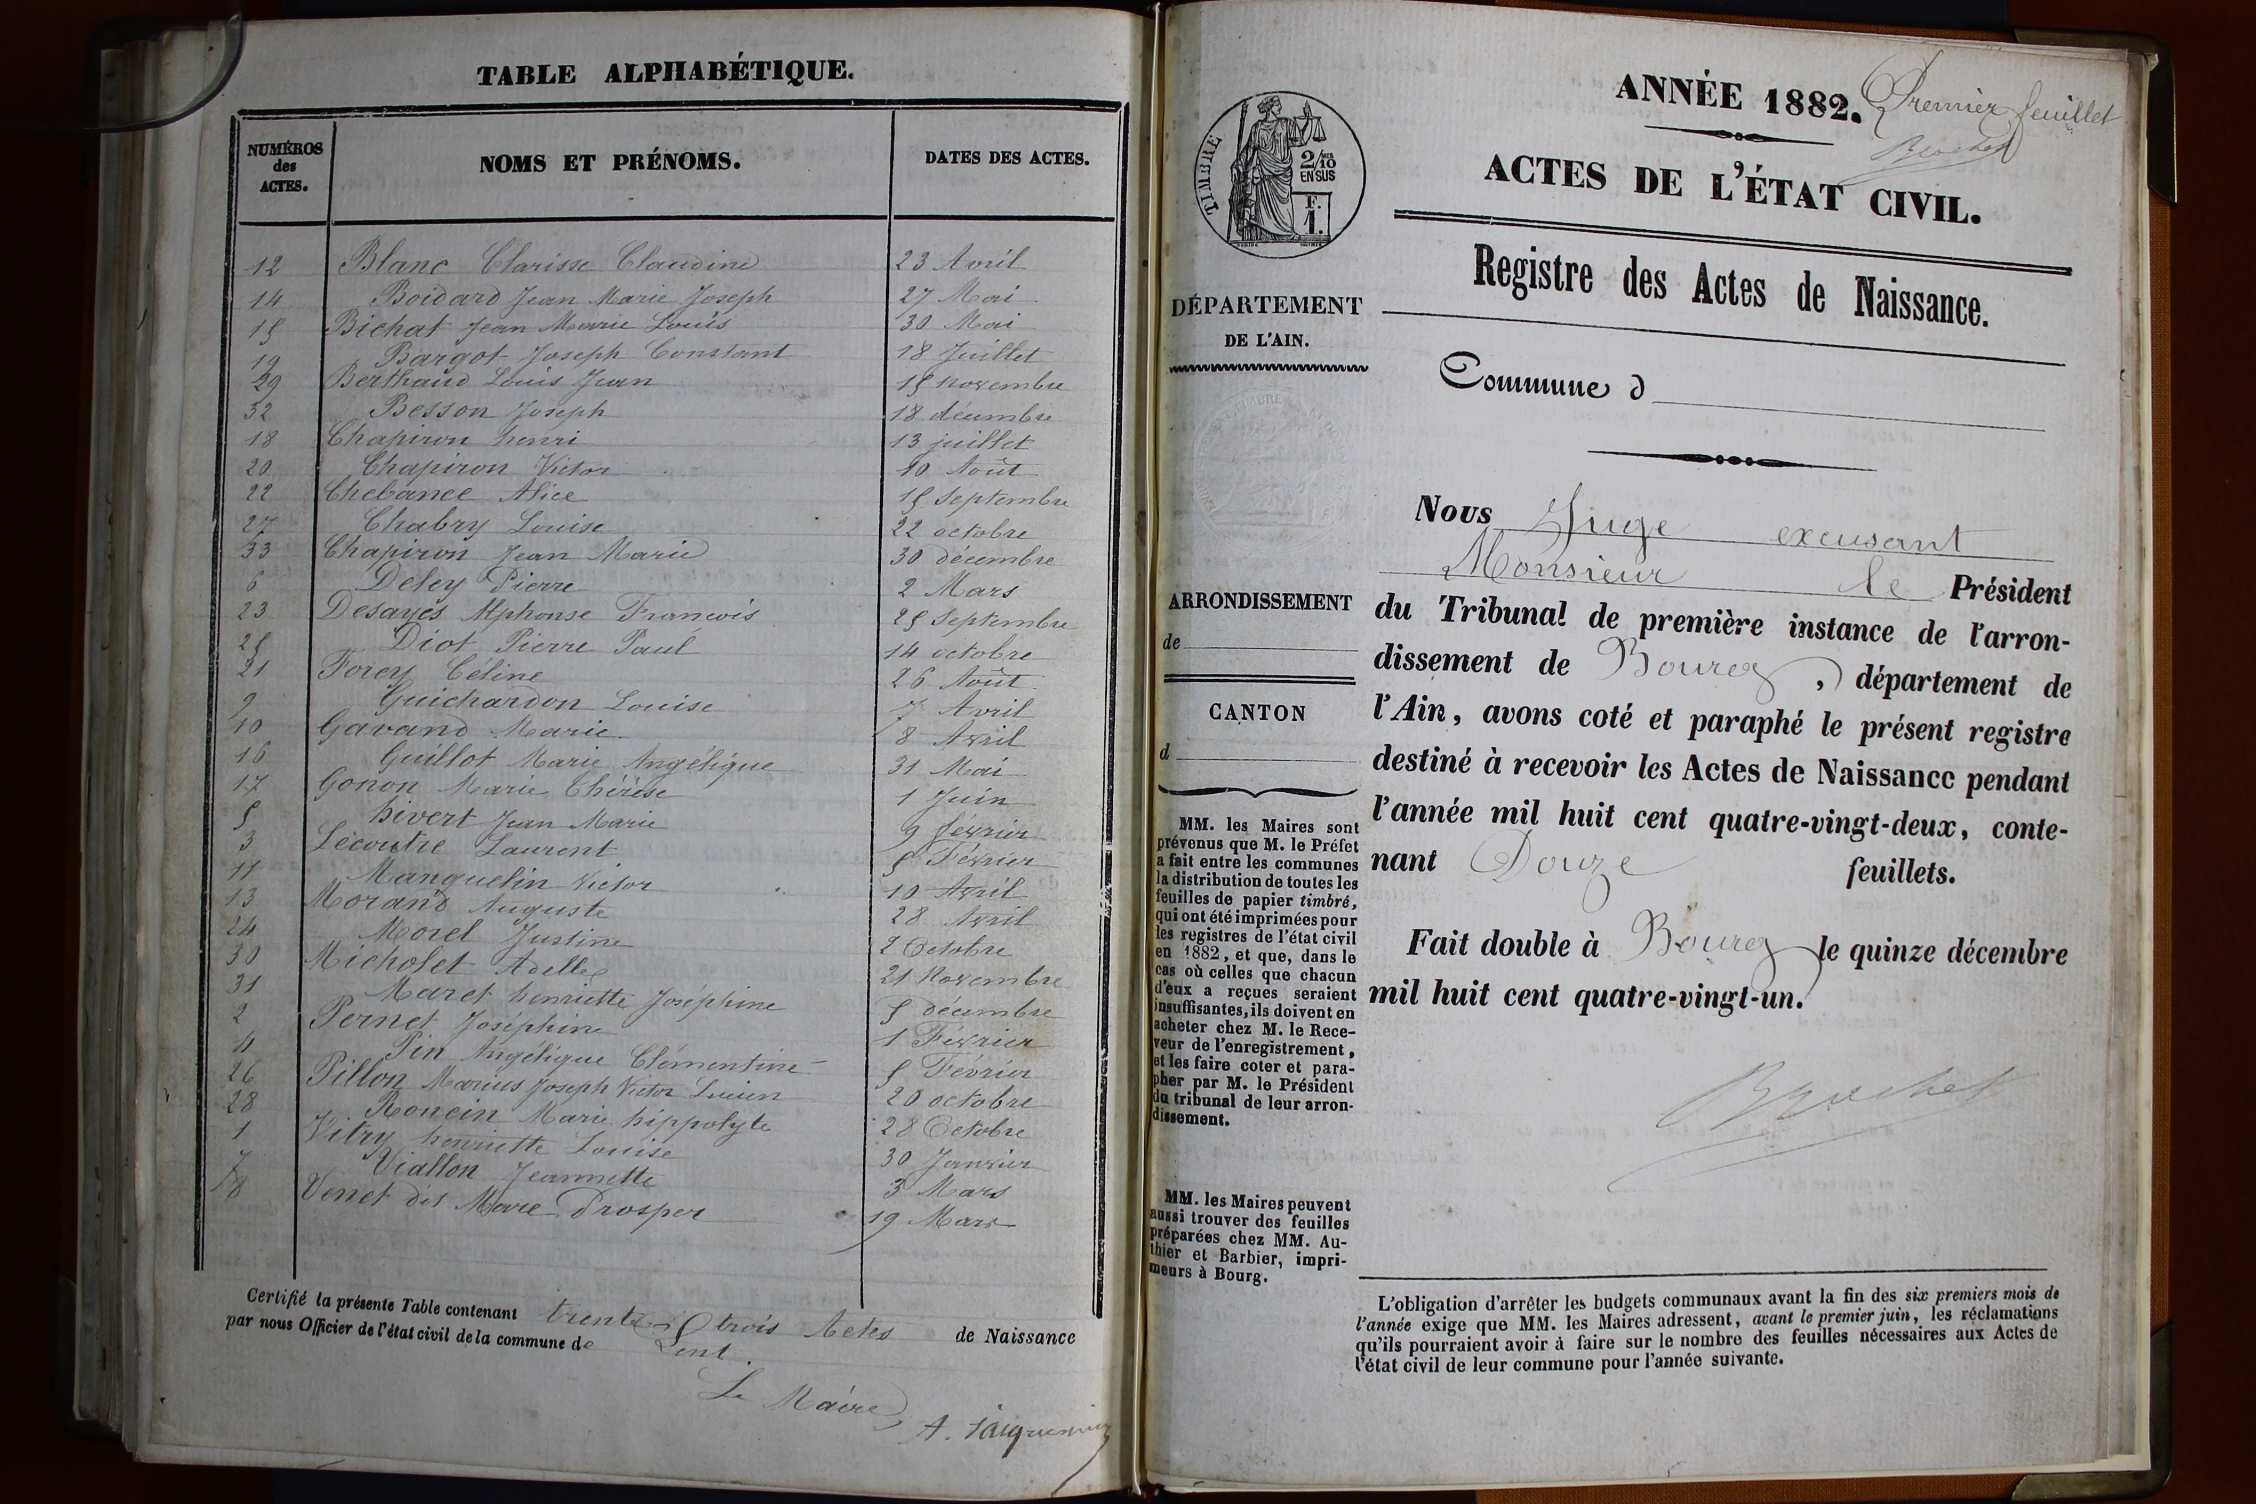 TABLE ALPHABÉTIQUE.
NUMÉROS des ACTES. NOMS ET PRÉNOMS. DATES DES ACTES.
12 Blanc Clarisse Claudine 23 Avril
14 Boidard Jean Marie Joseph 27 Mai
15 Bichat Jean Marie Louis 30 Mai
19 Bargot Joseph Constant 18 Juillet
29 Berthaud Louis Jean 15 novembre
32 Besson Joseph 18 décembre
18 Chapiron henri 13 juillet
20 Chapiron Victor 10 Août
22 Chebance Alice 15 Septembre
27 Chabry Louise 22 octobre
33 Chapiron Jean Marie 30 décembre
6 Deley Pierre 2 Mars
23 Desayes Alphonse Francois 25 Septembre
25 Diot Pierre Paul 14 octobre
21 Forey Céline 26 Août
9 Guichardon Louise 7 Avril
10 Gavand Marie 8 Avril
16 Guillot Marie Angélique 31 Mai
17 Gonon Marie Thérèse 1 Juin
5 hivert Jean Marie 9 février
3 Lecoutre Laurent 5 Février
11 Manguelin Victor 10 Avril
13 Morand Auguste 28 Avril
24 Morel Justine 2 Octobre
30 Micholet Adelle 21 Novembre
31 Maret henriette Joséphine 5 décembre
2 Pernet Joséphine 1 Février
4 Pin Angélique Clémentine 5 Février
26 Pillon Marius Joseph Victor Lucien 20 octobre
28 Roncin Marie hippolyte 28 Octobre
1 Vitry henriette Louise 30 Janvier
7 Viallon Jeannette 3 Mars
8 Venet dit More Prosper 19 Mars
Certifié la présente Table contenant trente trois Actes de Naissance
par nous Officier de l'état civil de la commune de Lent.
Le Maire
ANNÉE 1882. Premier feuillet
Brochet
ACTES DE L'ÉTAT CIVIL.
Registre des Actes de Naissance.
TIMBRE
2/10
EN SUS
F.
1.
DÉPARTEMENT
DE L'AIN.
Commune d
ARRONDISSEMENT
de
CANTON
d
MM. les Maires sont
prévenus que M. le Préfet
a fait entre les communes
la distribution de toutes les
feuilles de papier timbré,
qui ont été imprimées pour
les registres de l'état civil
en 1882, et que, dans le
cas où celles que chacun
d'eux a reçues seraient
insuffisantes, ils doivent en
acheter chez M. le Rece-
veur de l'enregistrement,
et les faire coter et para-
pher par M. le Président
du tribunal de leur arron-
dissement.
MM. les Maires peuvent
aussi trouver des feuilles
préparées chez MM. Au-
thier et Barbier, impri-
meurs à Bourg.
Nous Juge excusant
Monsieur le Président
du Tribunal de première instance de l'arron-
dissement de Bourg, département de
l'Ain, avons coté et paraphé le présent registre
destiné à recevoir les Actes de Naissance pendant
l'année mil huit cent quatre-vingt-deux, conte-
nant Douze feuillets.
Fait double à Bourg le quinze décembre
mil huit cent quatre-vingt-un.
Brochet
L'obligation d'arrêter les budgets communaux avant la fin des six premiers mois de
l'année exige que MM. les Maires adressent, avant le premier juin, les réclamations
qu'ils pourraient avoir à faire sur le nombre des feuilles nécessaires aux Actes de
l'état civil de leur commune pour l'année suivante.